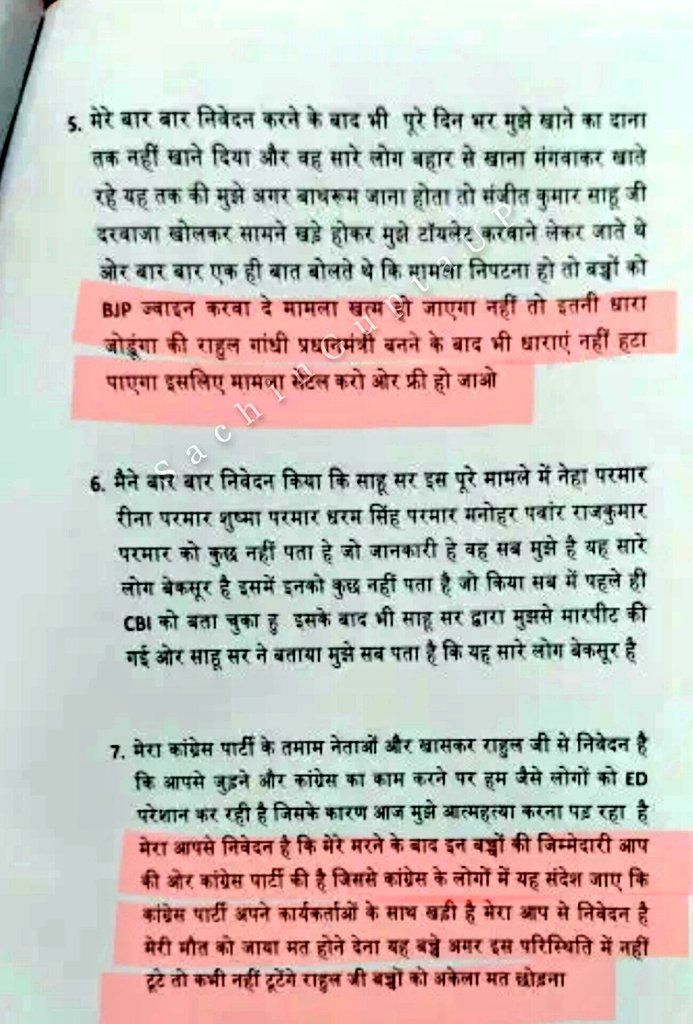 5. मेरे बार बार निवेदन करने के बाद भी पूरे दिन भर मुझे खाने का दाना
तक नहीं खाने दिया और वह सारे लोग बहार से खाना मंगवाकर खाते
रहे यह तक की मुझे अगर बाथरूम जाना होता तो संजीत कुमार साहू जी
दरवाजा खोलकर सामने खड़े होकर मुझे टॉयलेट करवाने लेकर जाते थे
ओर बार बार एक ही बात बोलते थे कि मामला निपटना हो तो बच्चों को
BJP ज्वाइन करवा दे मामला खत्म हो जाएगा नहीं तो इतनी धारा
जोडूंगा की राहुल गांधी प्रधानमंत्री बनने के बाद भी धाराएं नहीं हटा
पाएगा इसलिए मामला सेटल करो ओर फ्री हो जाओ
6. मैने बार बार निवेदन किया कि साहू सर इस पूरे मामले में नेहा परमार
रीना परमार शुष्मा परमार धरम सिंह परमार मनोहर पवांर राजकुमार
परमार को कुछ नहीं पता हे जो जानकारी हे वह सब मुझे है यह सारे
लोग बेकसूर है इसमें इनको कुछ नहीं पता है जो किया सब में पहले ही
CBI को बता चुका हु इसके बाद भी साहू सर द्वारा मुझसे मारपीट की
गई ओर साहू सर ने बताया मुझे सब पता है कि यह सारे लोग बेकसूर है
7. मेरा कांग्रेस पार्टी के तमाम नेताओं और खासकर राहुल जी से निवेदन है
कि आपसे जुड़ने और कांग्रेस का काम करने पर हम जैसे लोगों को ED
परेशान कर रही है जिसके कारण आज मुझे आत्महत्या करना पड़ रहा है
मेरा आपसे निवेदन है कि मेरे मरने के बाद इन बच्चों की जिम्मेदारी आप
की ओर कांग्रेस पार्टी की है जिससे कांग्रेस के लोगों में यह संदेश जाए कि
कांग्रेस पार्टी अपने कार्यकर्ताओं के साथ खड़ी है मेरा आप से निवेदन है
मेरी मौत को जाया मत होने देना यह बच्चे अगर इस परिस्थिति में नहीं
टूटे तो कभी नहीं टूटेंगे राहुल जी बच्चों को अकेला मत छोड़ना
SachinGuptaUP